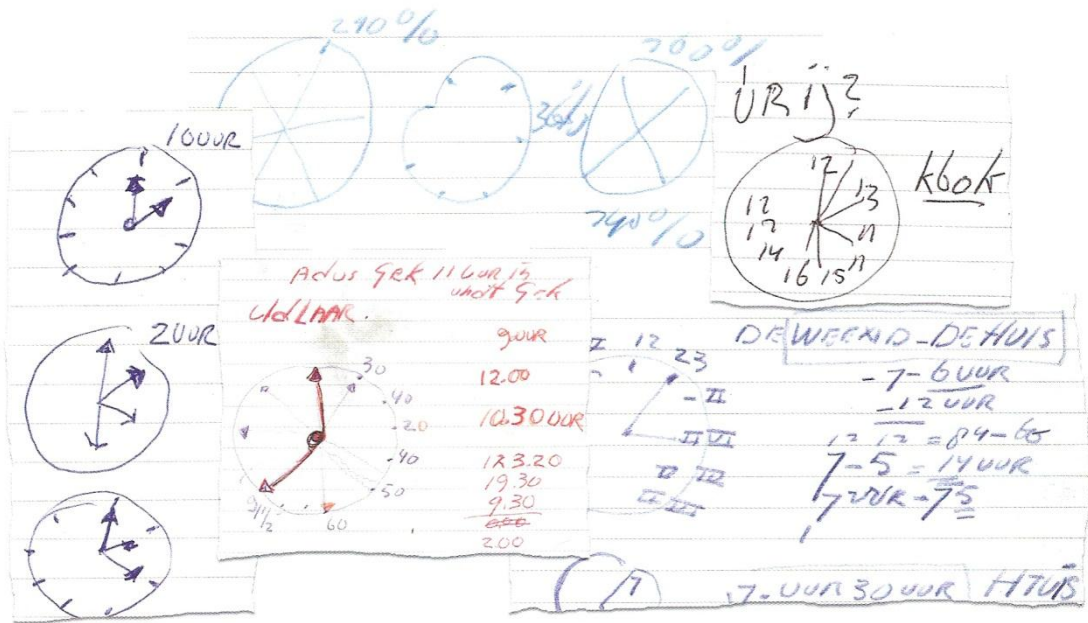 290%
200%
36%
240%
10 UUR
2 UUR
ÚRIJ?
kbok
12
13
12
12
14
11
11
16 15
Adus Gek 11 UUR is
UdLAAR.
9 UUR
12.00
10.30 UUR
123.20
19.30
9.30
2.00
30
40
20
40
50
60
9 1/2
12 23
II
II VI
DE WEEKND-DE HUIS
-7-6 UUR
-12 UUR
12 12 = 84-60
7-5 = 14 UUR
7 UUR-75
7-UUR 30 UUR
HTUIS